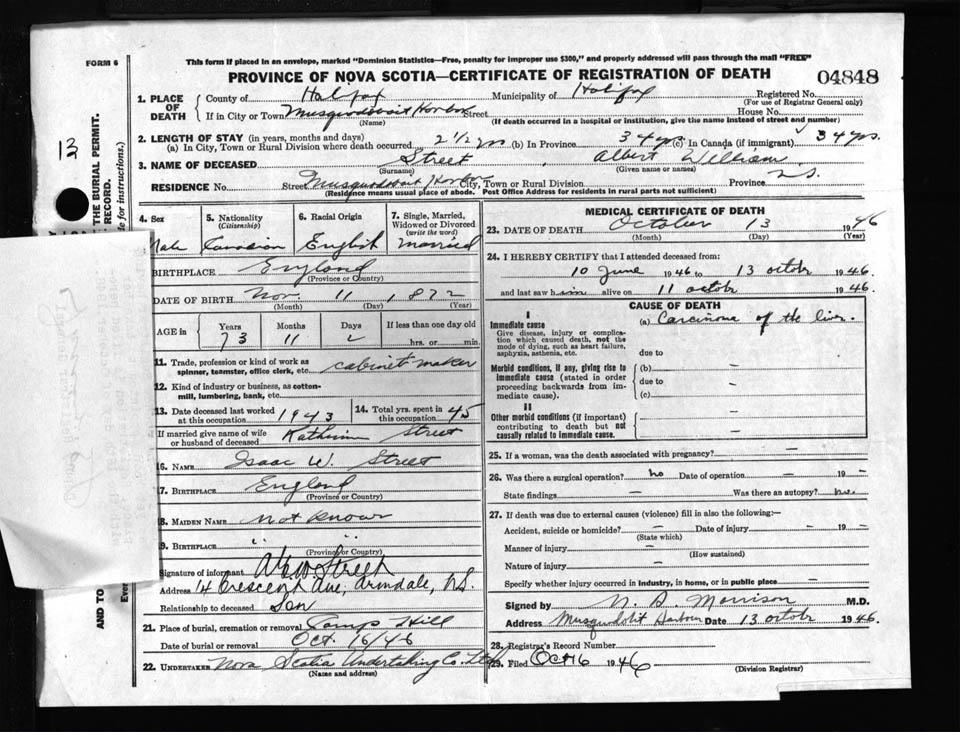 FORM 6
This form if placed in an envelope, marked "Dominion Statistics—Free, penalty for improper use $300," and properly addressed will pass through the mail "FREE"
PROVINCE OF NOVA SCOTIA—CERTIFICATE OF REGISTRATION OF DEATH
04848
1. PLACE OF DEATH
County of Halifax Municipality of Halifax Registered No.
(For use of Registrar General only)
If in City or Town Musquodoboit Harbor Street House No.
(Name) (If death occurred in a hospital or institution, give the name instead of street and number)
2. LENGTH OF STAY (in years, months and days)
(a) In City, Town or Rural Division where death occurred 2 1/2 yrs (b) In Province 34 yrs (c) In Canada (if immigrant) 34 yrs.
3. NAME OF DECEASED Street Albert William
(Surname) (Given name or names)
RESIDENCE No. Street Musquodoboit Harbor City, Town or Rural Division Province N.S.
(Residence means usual place of abode. Post Office Address for residents in rural parts not sufficient)
4. Sex
Male
5. Nationality (Citizenship)
Canadian
6. Racial Origin
English
7. Single, Married, Widowed or Divorced (write the word)
married
BIRTHPLACE England
(Province or Country)
DATE OF BIRTH Nov. 11, 1872
(Month) (Day) (Year)
AGE in Years Months Days If less than one day old
73 11 2 hrs. or min.
11. Trade, profession or kind of work as spinner, teamster, office clerk, etc. cabinet maker
12. Kind of industry or business, as cotton-mill, lumbering, bank, etc.
13. Date deceased last worked at this occupation 1943
14. Total yrs. spent in this occupation 45
If married give name of wife or husband of deceased Katherine Street
16. NAME Isaac W. Street
17. BIRTHPLACE England
(Province or Country)
18. MAIDEN NAME Not Known
19. BIRTHPLACE " "
(Province or Country)
Signature of informant Street
Address 14 Crescent Ave, Armdale, N.S.
Relationship to deceased Son
21. Place of burial, cremation or removal Camp Hill
Date of burial or removal Oct. 16/46
22. UNDERTAKER Nova Scotia Undertaking Co. Ltd
(Name and address)
MEDICAL CERTIFICATE OF DEATH
23. DATE OF DEATH October 13 1946
(Month) (Day) (Year)
24. I HEREBY CERTIFY that I attended deceased from:
10 June 1946 to 13 octobr 1946.
and last saw him alive on 11 octobr 1946.
CAUSE OF DEATH
I
Immediate cause (a) Carcinoma of the liver.
Give disease, injury or complication which caused death, not the mode of dying, such as heart failure, asphyxia, asthenia, etc.
due to
Morbid conditions, if any, giving rise to immediate cause (stated in order proceeding backwards from immediate cause).
(b) —
due to —
(c)
II
Other morbid conditions (if important) contributing to death but not causally related to immediate cause.
—
—
25. If a woman, was the death associated with pregnancy? —
26. Was there a surgical operation? no Date of operation — 19 —
State findings — Was there an autopsy? no.
27. If death was due to external causes (violence) fill in also the following:—
Accident, suicide or homicide? — Date of injury — 19 —
(State which)
Manner of injury —
(How sustained)
Nature of injury —
Specify whether injury occurred in industry, in home, or in public place —
Signed by N. D Morrison M.D.
Address Musquodobit Harbour Date 13 octobr 1946.
28. Registrar's Record Number
29. Filed OCT 16 1946
(Division Registrar)
13
THE BURIAL PERMIT.
RECORD.
for instructions.)
AND TO